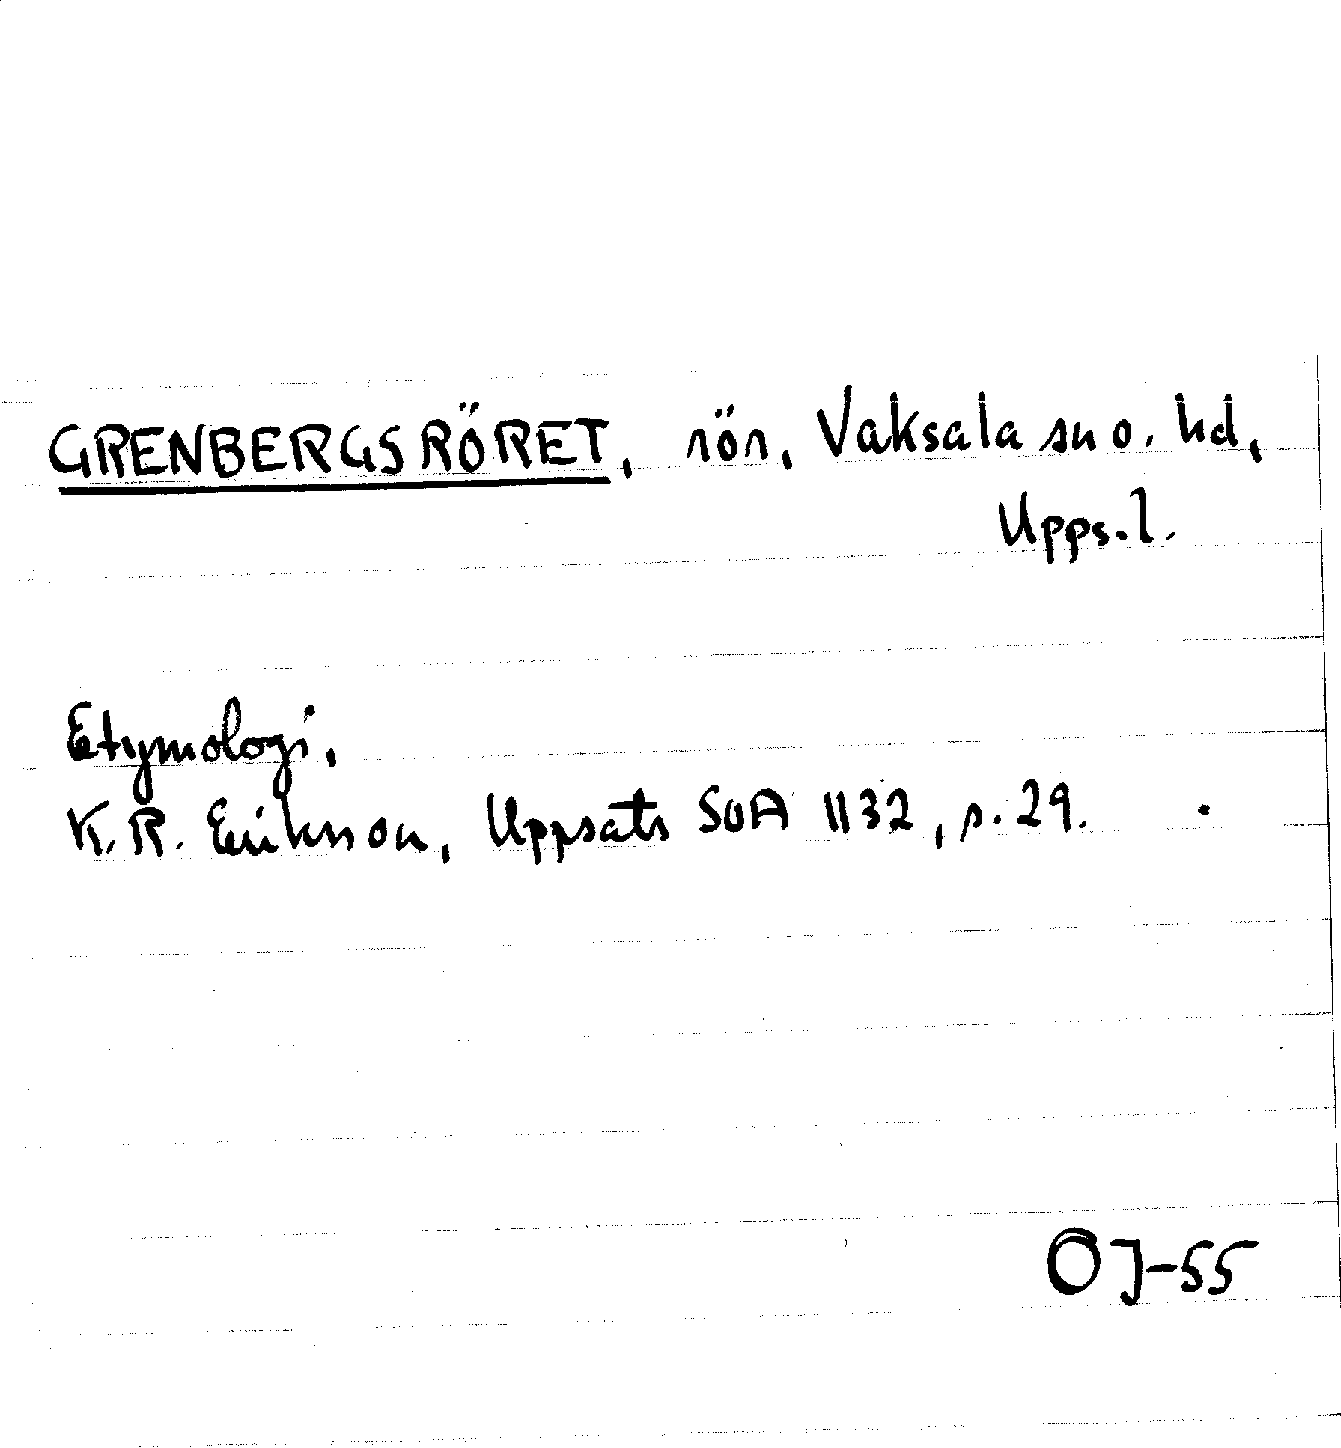 GRENBERGSRÖRET, rör, Vaksala sn o. hd,
Upps.l.
Etymologi.
K.R. Erikson, Uppsats SOA 1132, s. 29.
OJ-55